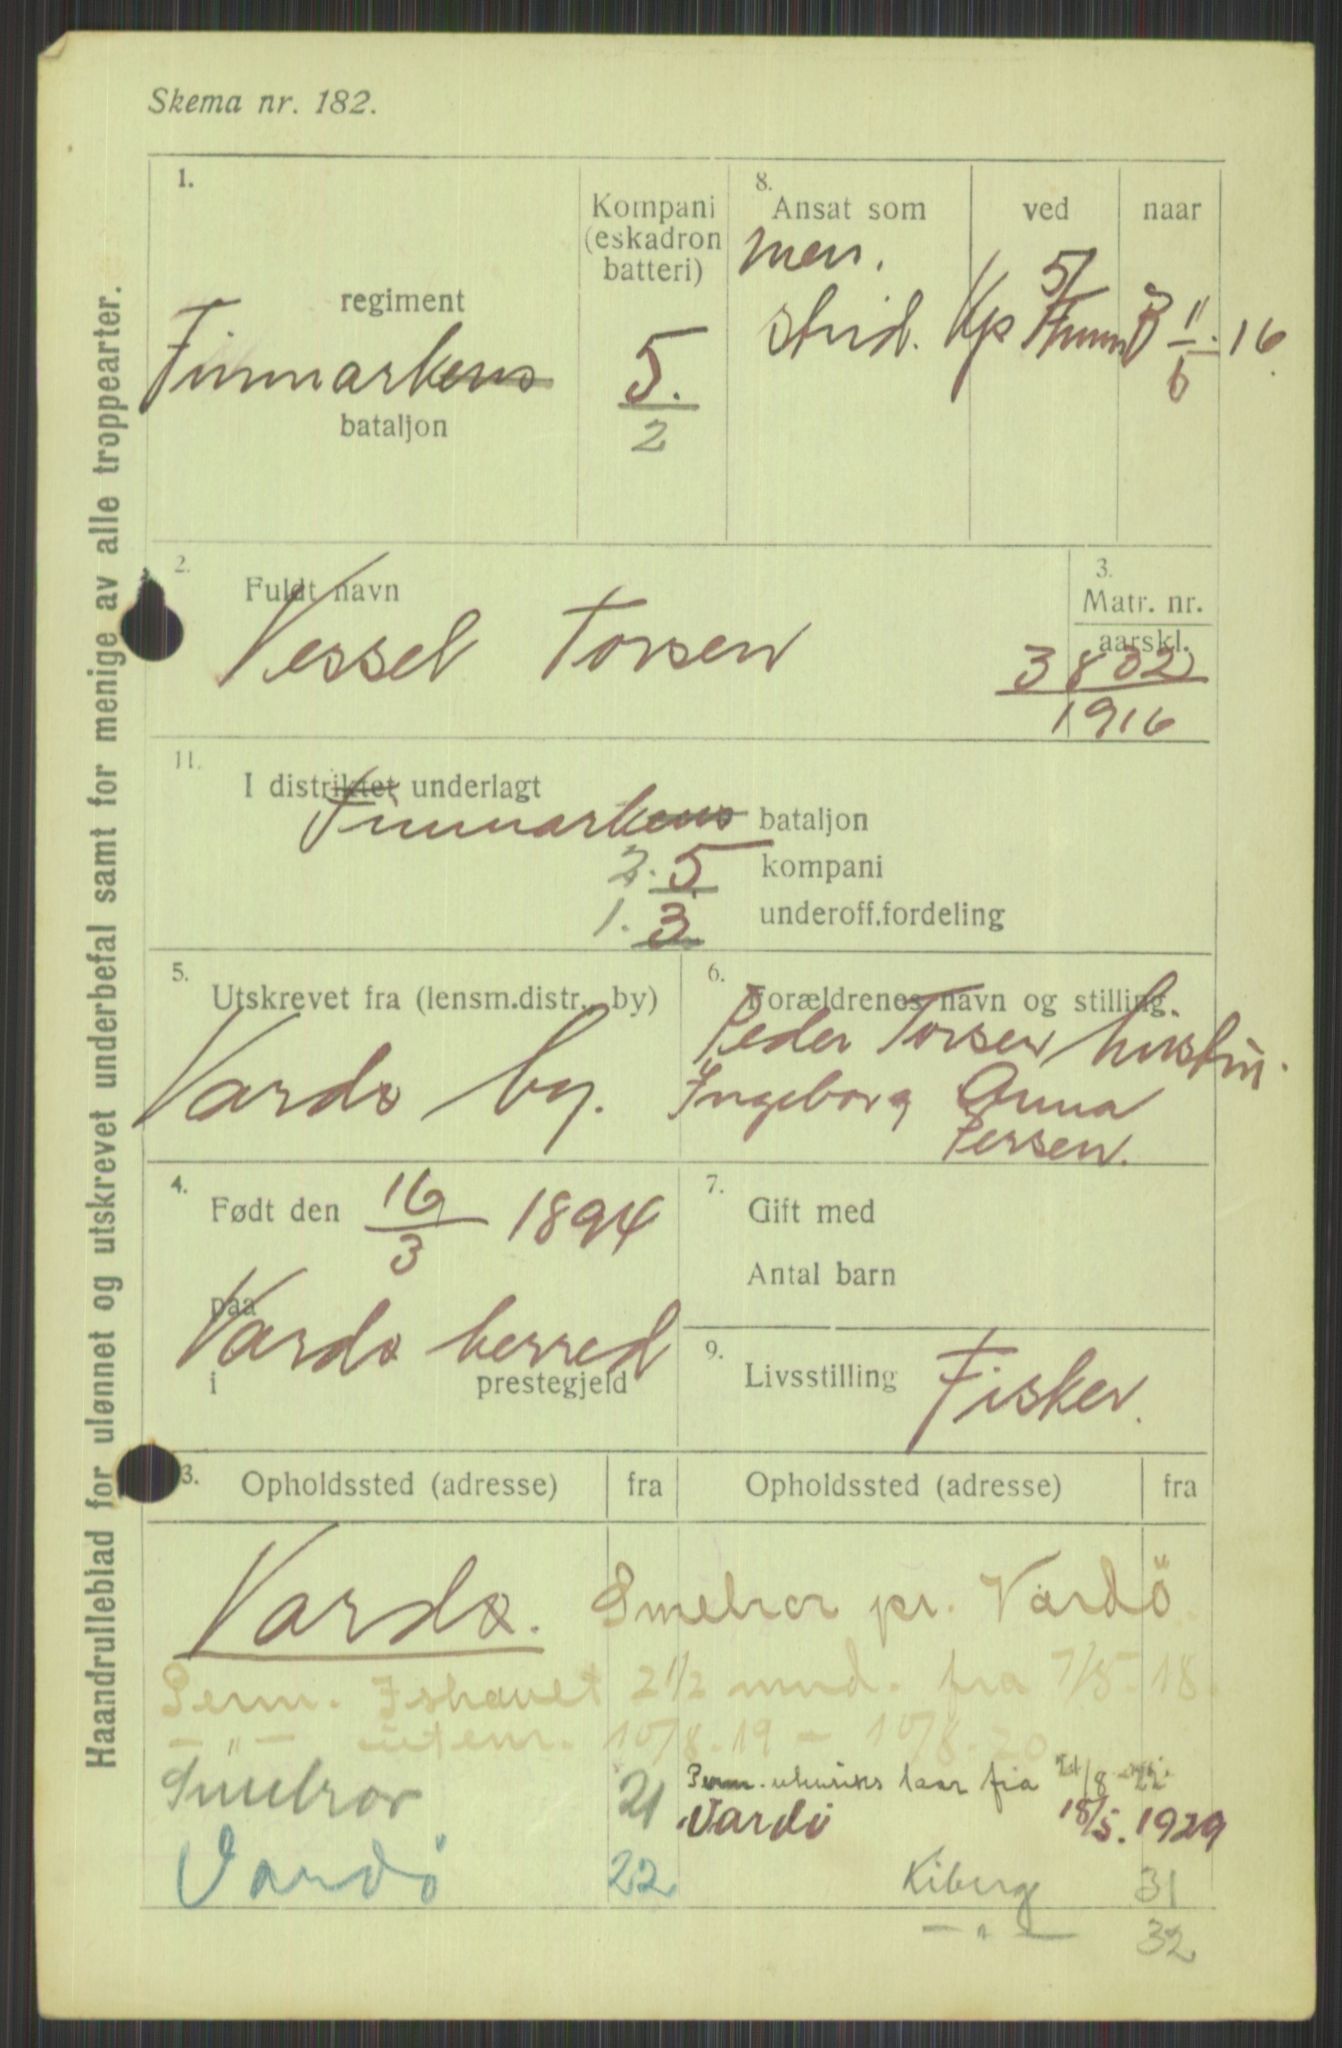 Skema nr. 182.
Haandrulleblad for ulønnet og utskrevet underbefal samt for menige av alle troppearter.
1.
regiment
Finmarkens
bataljon
Kompani
(eskadron
batteri)
5.
2
8.
Ansat som ved naar
men.
strid. Kp 5/ FinmB 11/6.16
2.
Fuldt navn
Vessel Torsen
3.
Matr. nr.
aarskl.
3832
1916
11.
I distriktet underlagt
Finmarkens bataljon
2. 5 kompani
1. 3 underoff.fordeling
5.
Utskrevet fra (lensm.distr., by)
Vardø by.
6.
Forældrenes navn og stilling.
Peder Torsen
Ingeborg Anna
Persen.
4.
Født den 16/3 1894
paa
Vardø herred
i prestegjeld
7.
Gift med
Antal barn
9.
Livsstilling Fisker.
3. Opholdssted (adresse) fra Opholdssted (adresse) fra
Vardø. Smelror pr. Vardö
Perm. Ishavet 2 1/2 mnd. fra 7/5-18.
-"- utenr. 10/8.19 - 10/8.20
Smelror 21 Perm. utenriks 1 aar fra /8 22
Vardö 18/5. 1929
Vardö 22 Kiberg 31
-"- 32